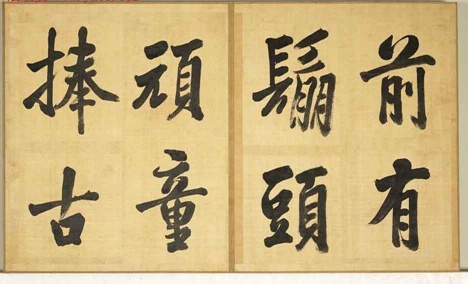 前有
鬅頭
頑童
捧古